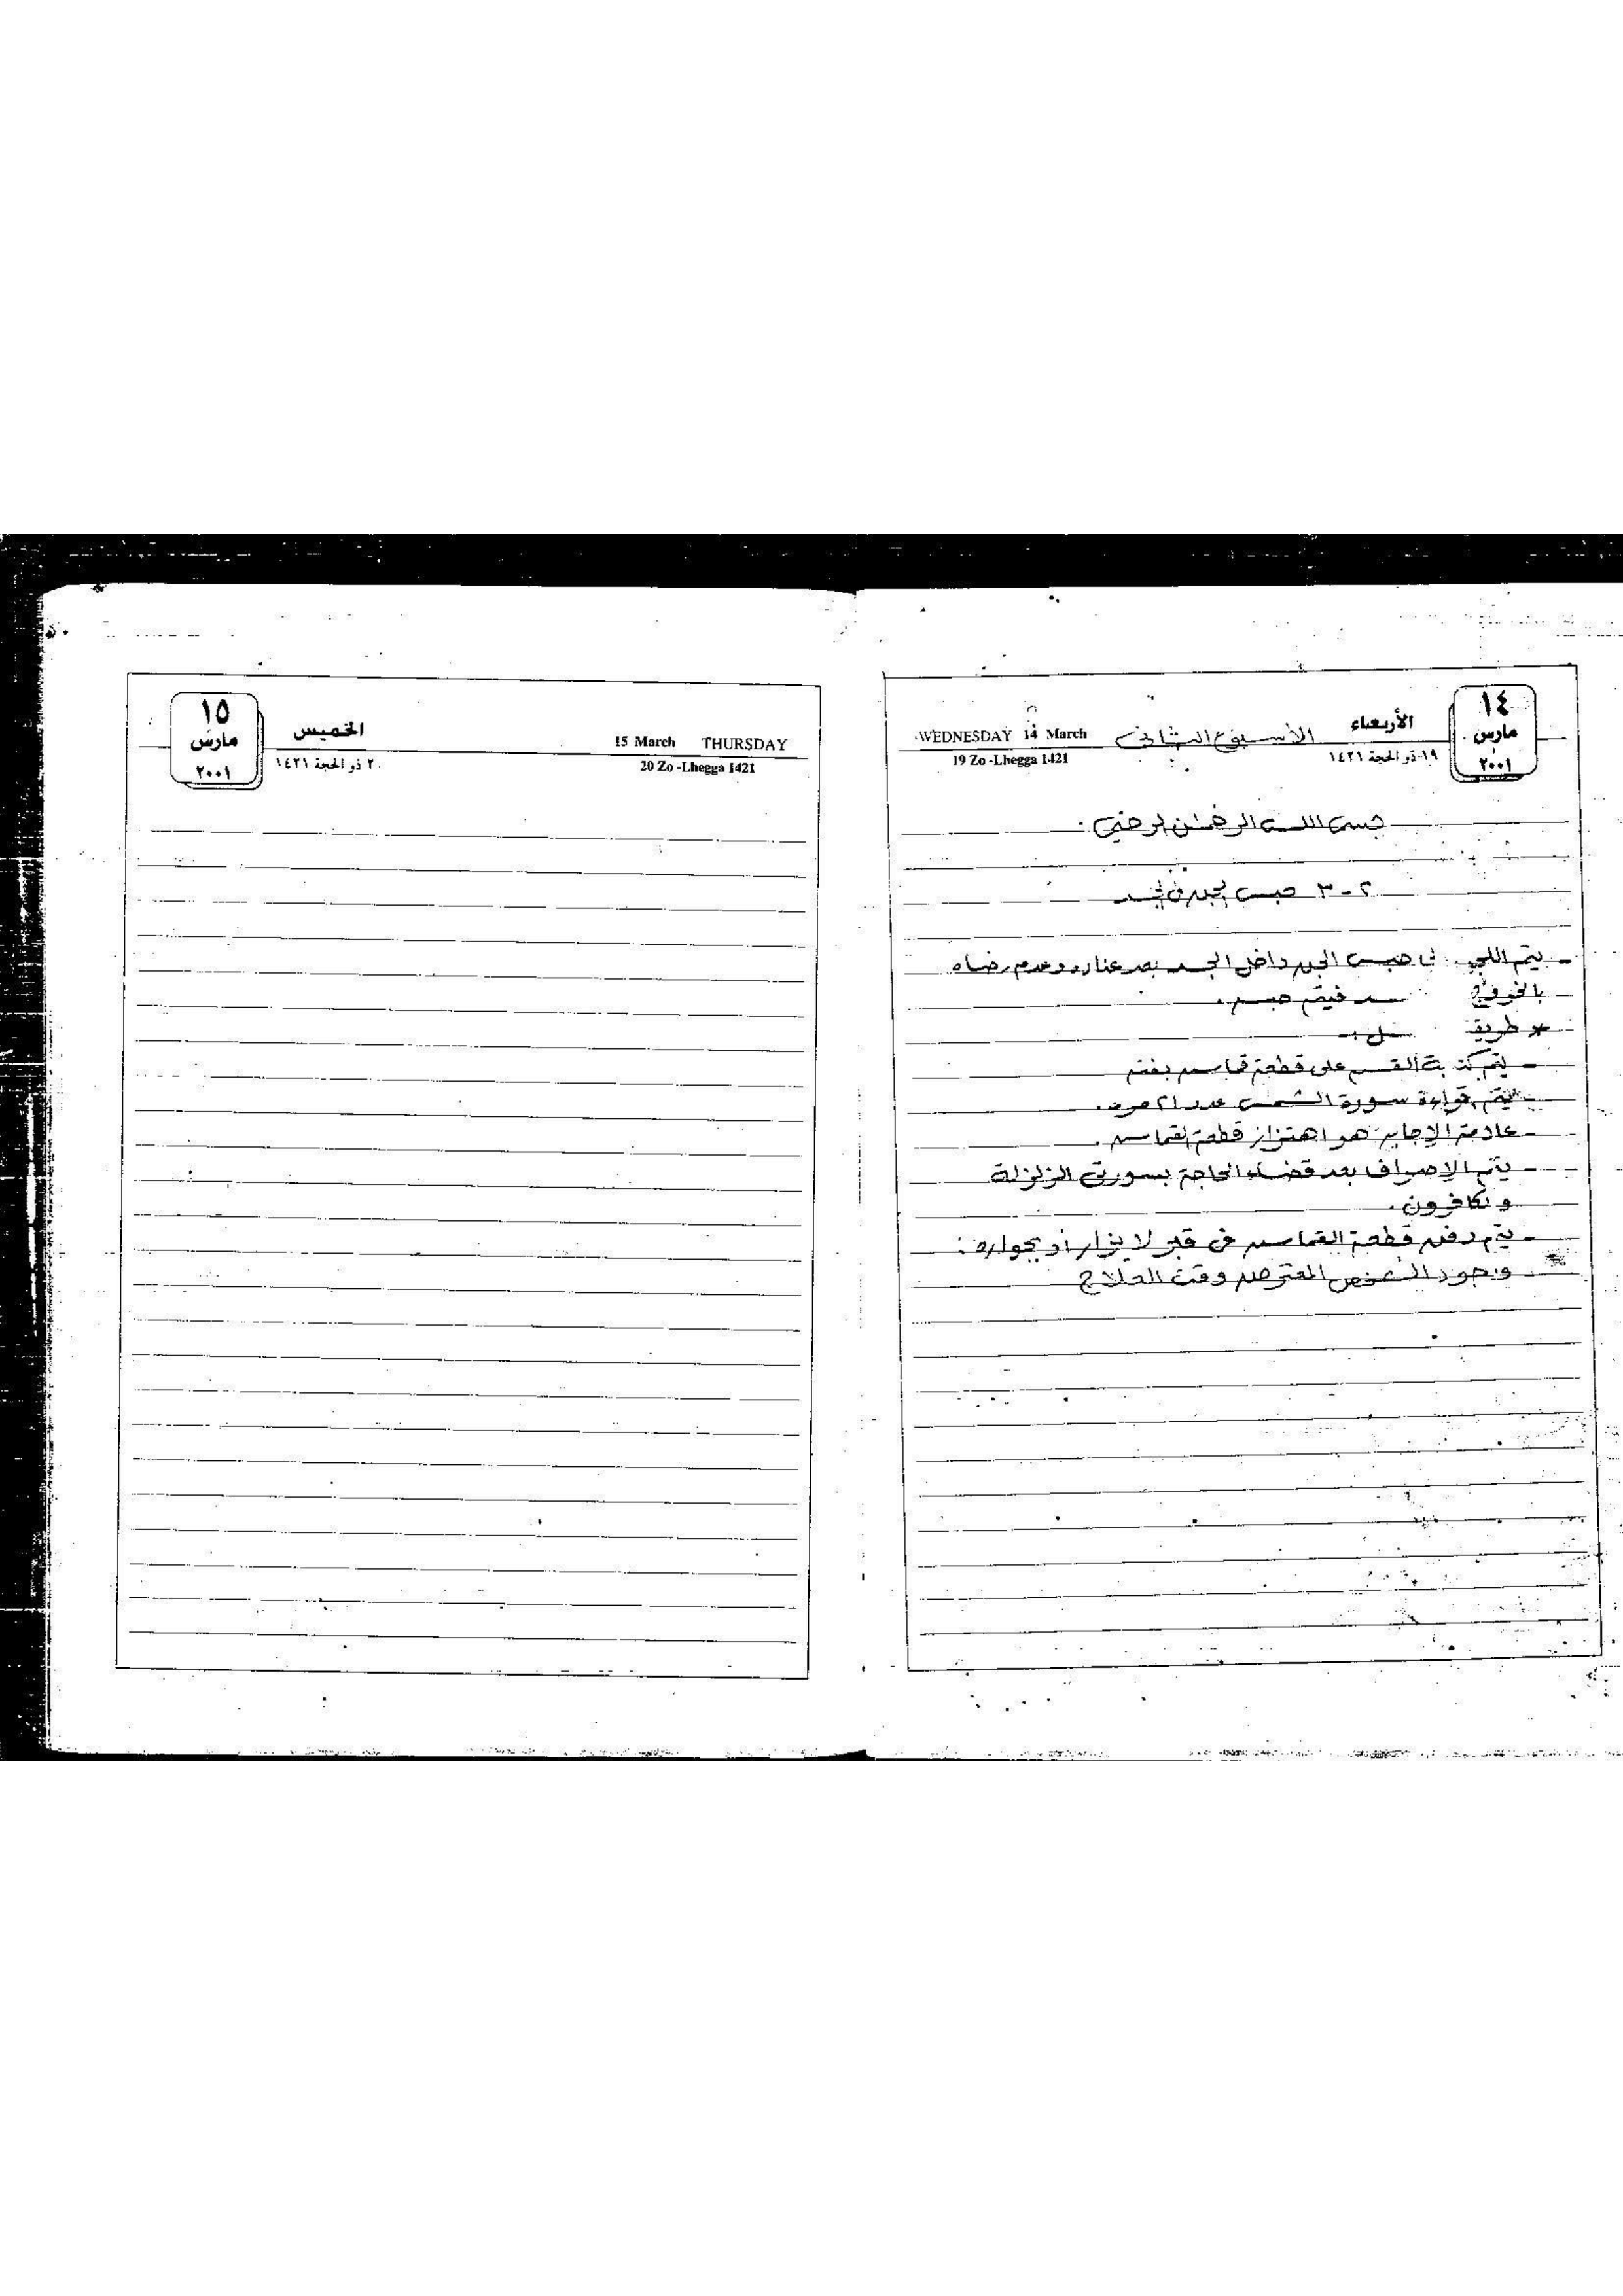 ١٤
مارس
٢٠٠١
الأربعاء
١٩ ذو الحجة ١٤٢١
الأسبوع الثاني
WEDNESDAY 14 March
19 Zo -Lhegga 1421
بسم الله الرحمن الرحيم.
٢-٣ حبس الجن في الجسد
- يتم اللجوء حبس الجن داخل الجسد بعد عناده وعدم رضاه
بالخروج فيتم حبسه.
* طريقة
- يتم كتابة القسم على قطعة قماش بفتم
- يتم قراءة سورة الشمس عدد ٢١ مرة.
- علامة الإجابة هو اهتزاز قطعة القماش.
- يتم الإصراف بعد قضاء الحاجة بسورتي الزلزلة
والكافرون.
- يتم دفن قطعة القماش في قبر لا يزار أو بجواره.
وجود الشخص المقترن وقت العلاج
١٥
مارس
٢٠٠١
الخميس
٢٠ ذو الحجة ١٤٢١
15 March THURSDAY
20 Zo -Lhegga 1421